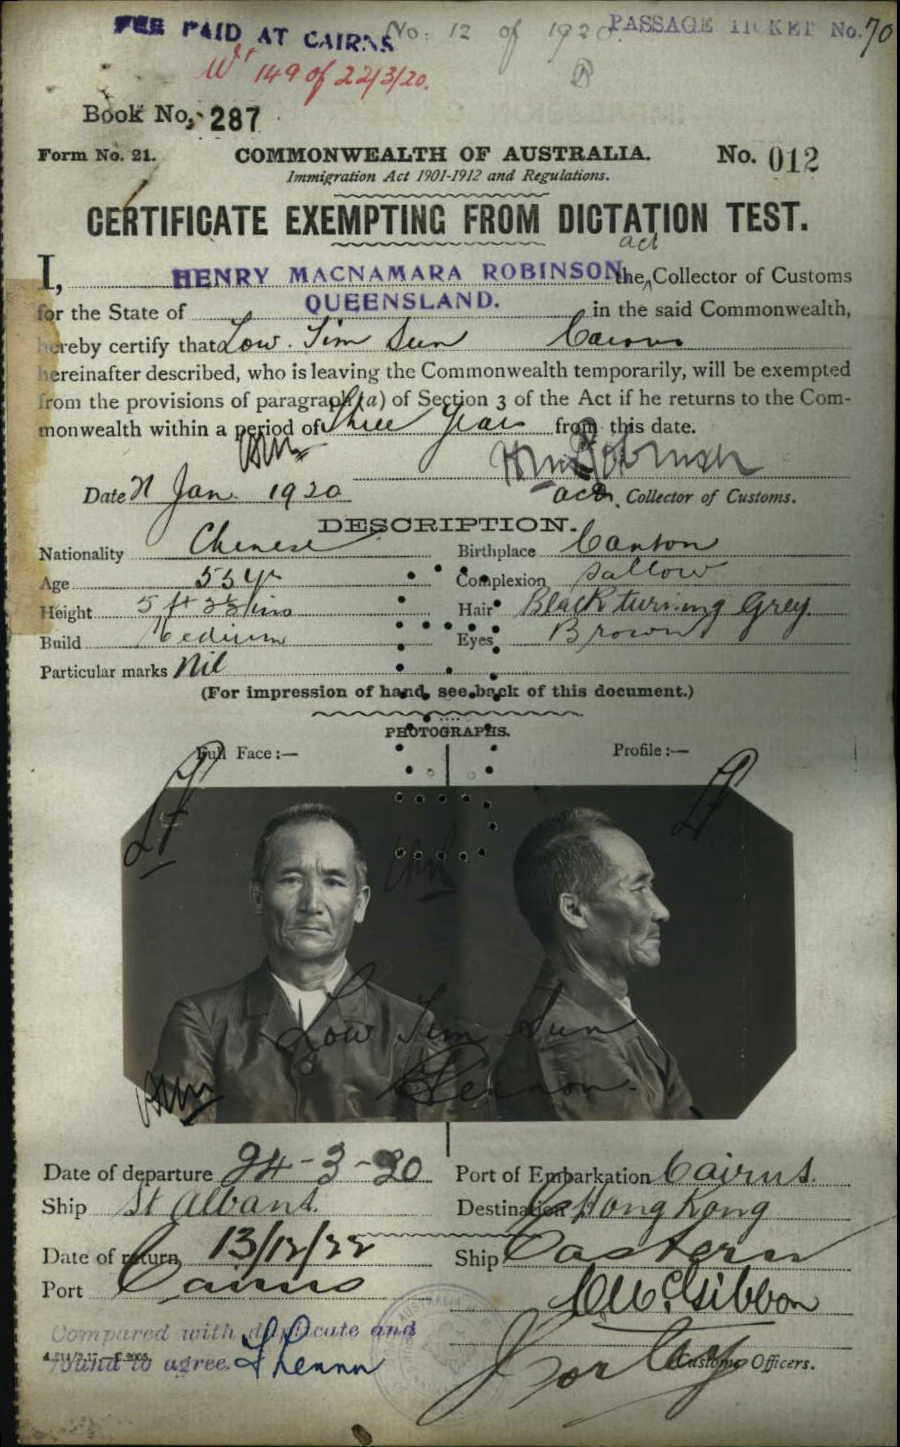 FEE PAID AT CAIRNS No. 12 of 1920. PASSAGE TICKET No. 70
Wt 149 of 22/3/20.
Book No. 287
Form No. 21. COMMONWEALTH OF AUSTRALIA. No. 012
Immigration Act 1901-1912 and Regulations.
CERTIFICATE EXEMPTING FROM DICTATION TEST.
act
I, HENRY MACNAMARA ROBINSON, the Collector of Customs
for the State of QUEENSLAND. in the said Commonwealth,
hereby certify that Low Tim Sun Cairns
hereinafter described, who is leaving the Commonwealth temporarily, will be exempted
from the provisions of paragraph (a) of Section 3 of the Act if he returns to the Com-
monwealth within a period of Three Years from this date.
HMRobinson
Date 21 Jan. 1920 Collector of Customs.
DESCRIPTION.
Nationality Chinese Birthplace Canton
Age 55 yr Complexion Sallow
Height 5 ft ins Hair Black turning Grey
Build Medium Eyes Brown
Particular marks Nil
(For impression of hand, see back of this document.)
PHOTOGRAPHS.
Full Face:— Profile:—
Low Tim Sun
Date of departure 24-3-20 Port of Embarkation Cairns.
Ship St Albans. Destination Hong Kong
Date of return 13/12/22 Ship Eastern
Port Cairns
McGibbon
Compared with duplicate and
found to agree.
Customs Officers.